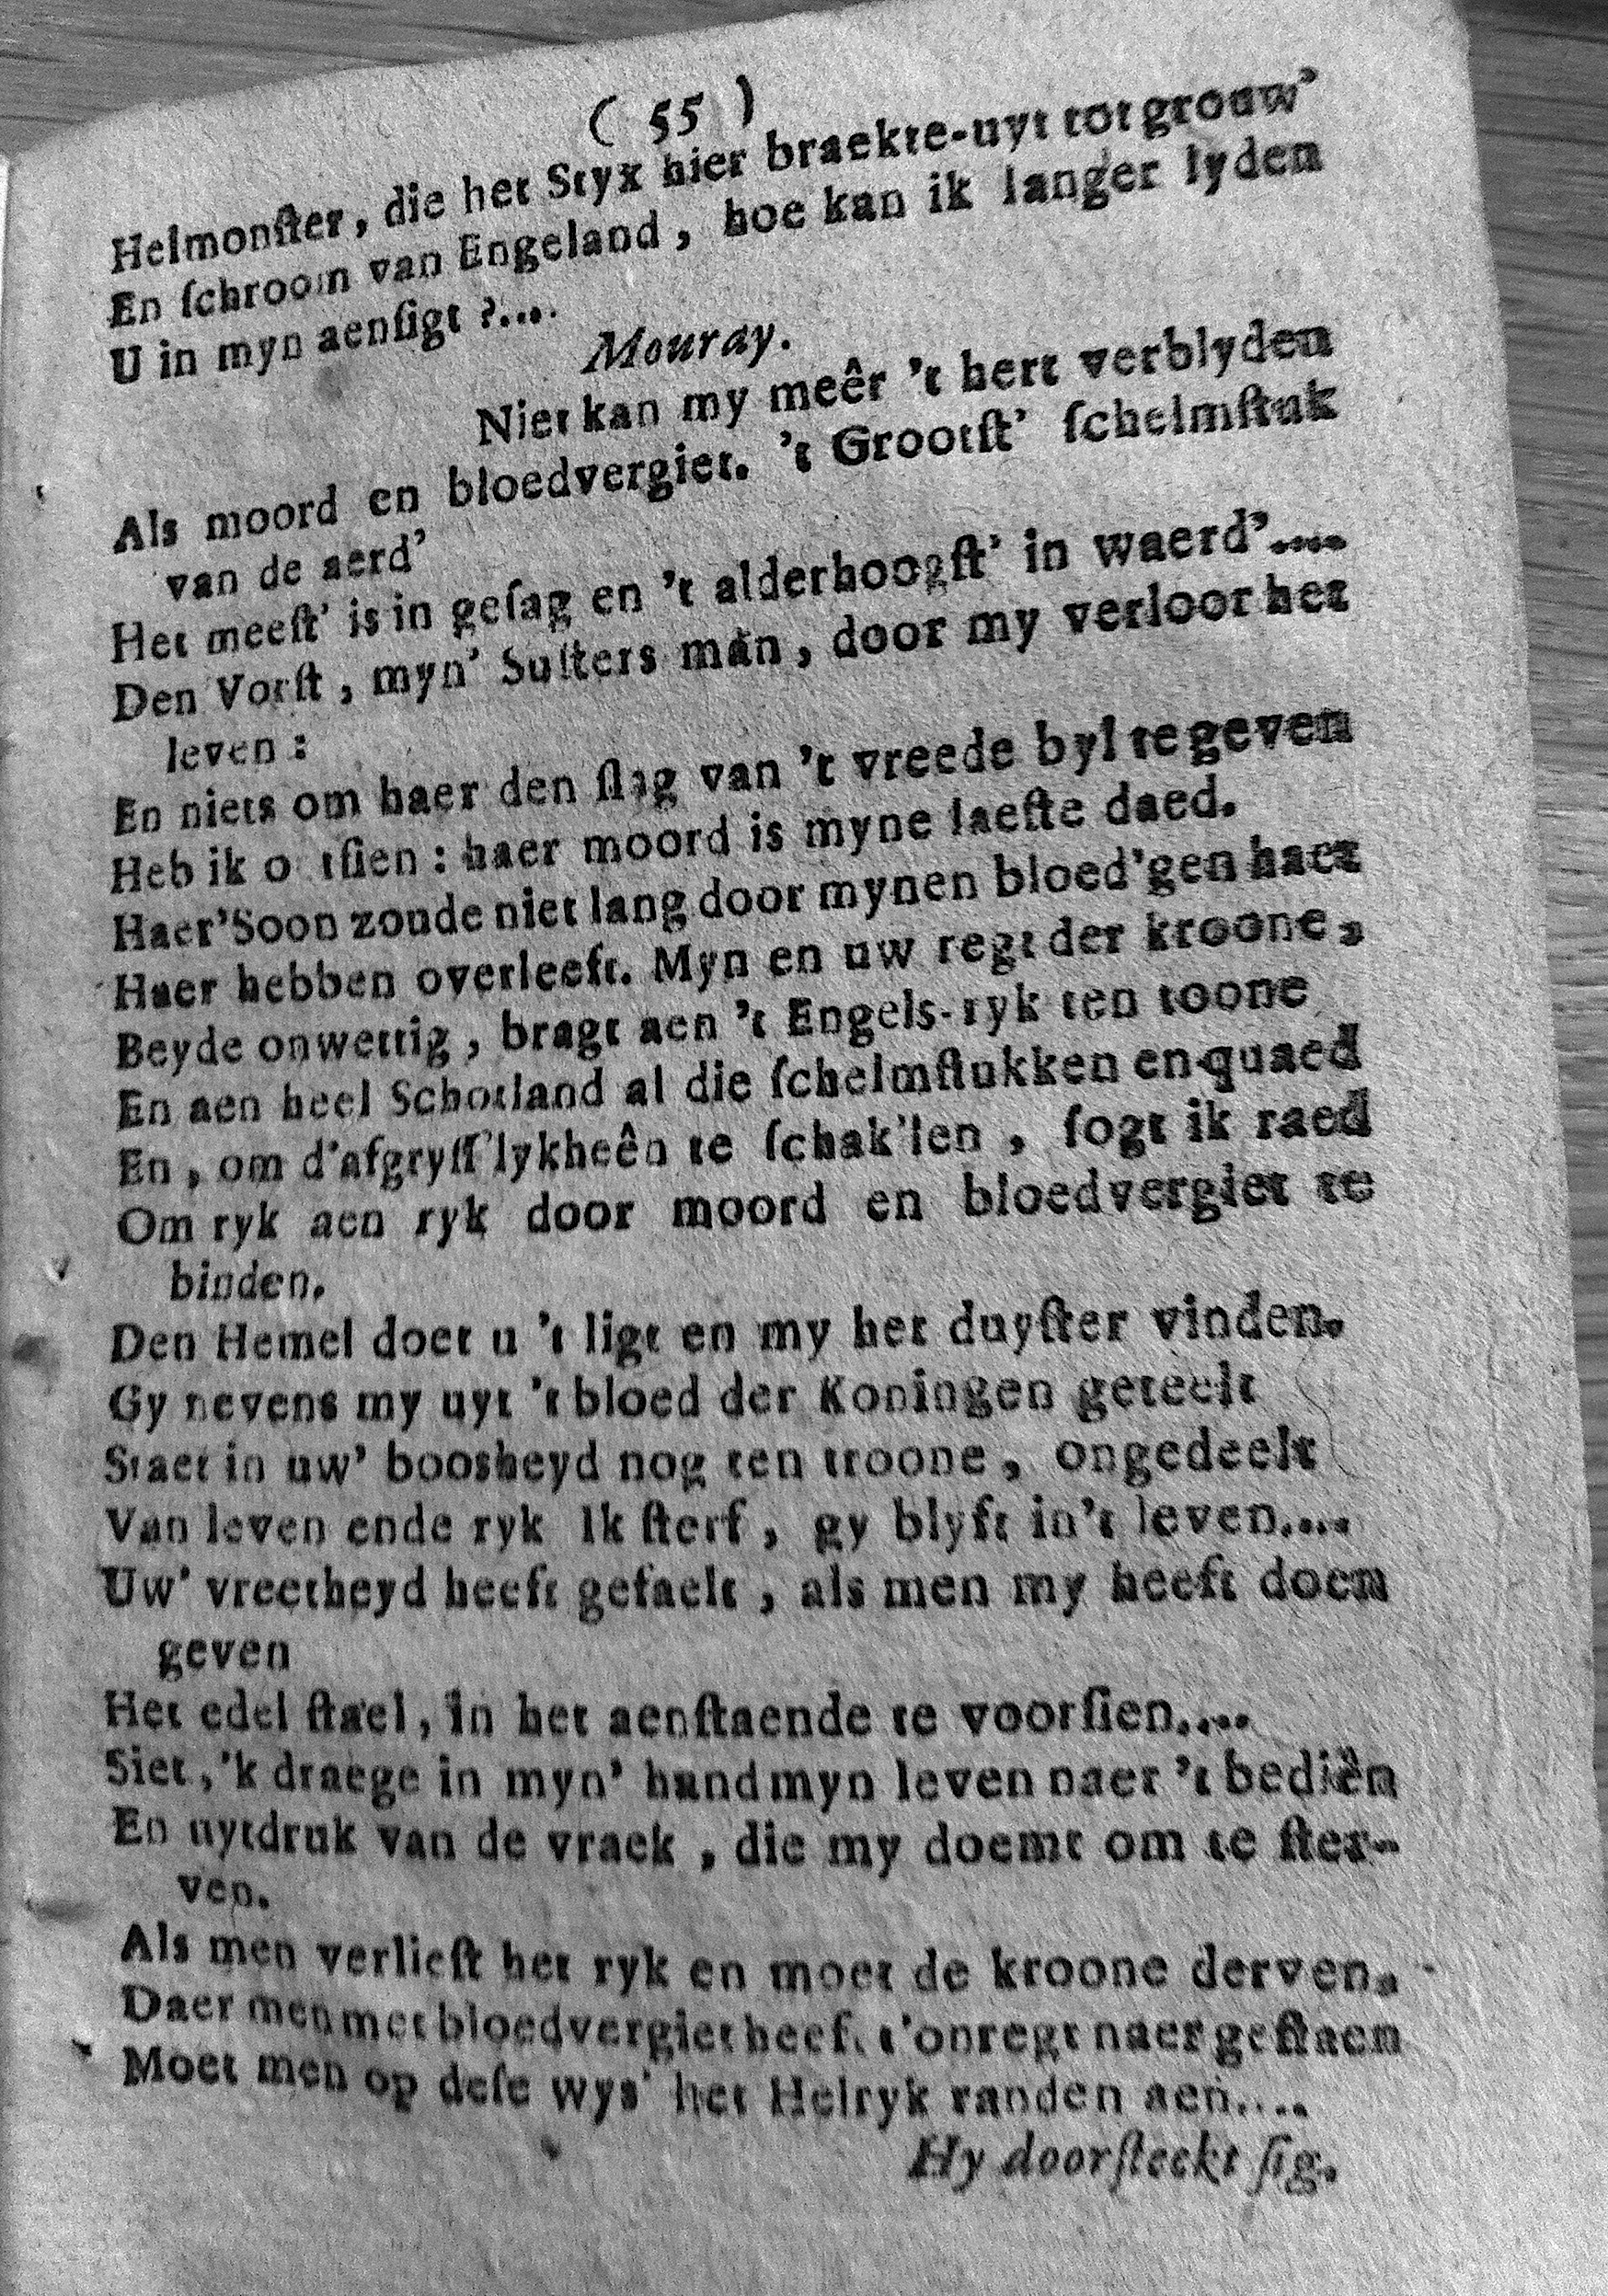 ( 55 )
Helmonſter, die het Styx hier braekte-uyt tot grouw'
En ſchroom van Engeland, hoe kan ik langer lyden
U in myn aenſigt ?....
Mouray.
Niet kan my meêr 't hert verblyden
Als moord en bloedvergiet. 't Grootſt' ſchelmſtuk
van de aerd'
Het meeſt' is in geſag en 't alderhoogſt' in waerd'....
Den Vorſt, myn' Suſters man, door my verloor het
leven :
En niets om haer den ſlag van 't vreede byl te geven
Heb ik o tſien : haer moord is myne laeſte daed.
Haer' Soon zoude niet lang door mynen bloed'gen haet
Haer hebben overleeft. Myn en uw regt der kroone,
Beyde onwettig, bragt aen 't Engels-ryk ten toone
En aen heel Schotland al die ſchelmſtukken en quaed
En, om d'afgryſſ'lykheên te ſchak'len, ſogt ik raed
Om ryk aen ryk door moord en bloedvergiet te
binden.
Den Hemel doet u 't ligt en my het duyſter vinden.
Gy nevens my uyt 't bloed der Koningen geteelt
Staet in uw' boosheyd nog ten troone, ongedeelt
Van leven ende ryk Ik ſterf, gy blyft in't leven....
Uw' vreetheyd heeft gefaelt, als men my heeft doen
geven
Het edel ſtael, in het aenſtaende te voorſien....
Siet,'k draege in myn' hand myn leven naer 't bediên
En uytdruk van de vraek, die my doemt om te ſter-
ven.
Als men verlieſt het ryk en moet de kroone derven,
Daer men met bloedvergiet heeft t'onregt naer geſtaen
Moet men op deſe wys' het Helryk randen aen....
Hy doorſteekt ſig.